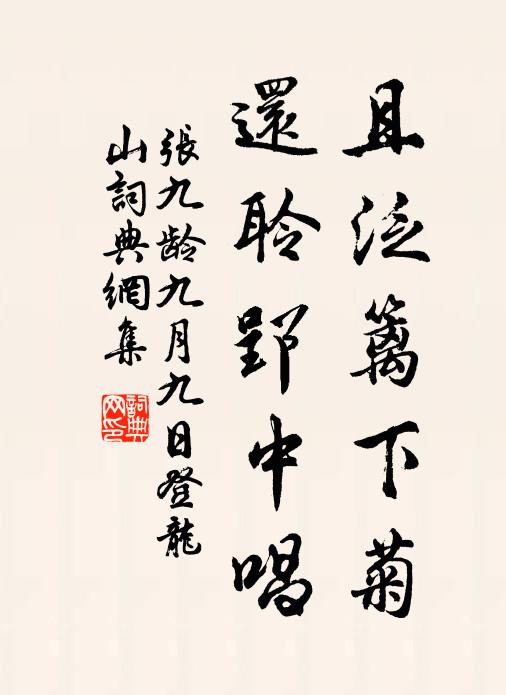 且泛篱下菊
還聆郢中唱
張九龄九月九日登龍
山詞典網集
詞典網印